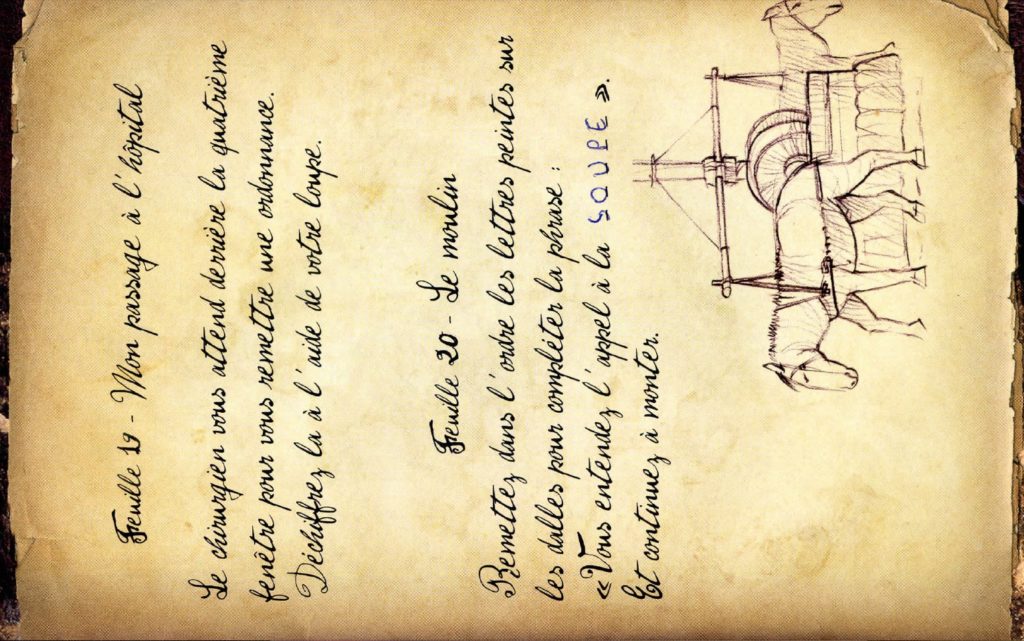 Feuille 19 - Mon passage à l'hôpital
Le chirurgien vous attend derrière la quatrième
fenêtre pour vous remettre une ordonnance.
Déchiffrez la à l'aide de votre loupe.
Feuille 20 - Le moulin
Remettez dans l'ordre les lettres peintes sur
les dalles pour compléter la phrase :
«Vous entendez l'appel à la SOUPE ».
Et continuez à monter.